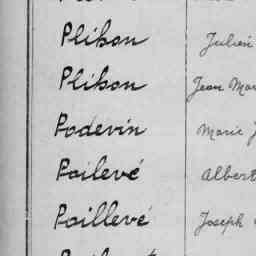 Plihon Julien
Plihon Jean Mar
Podevin Marie J
Poilevé Albert
Poillevé Joseph